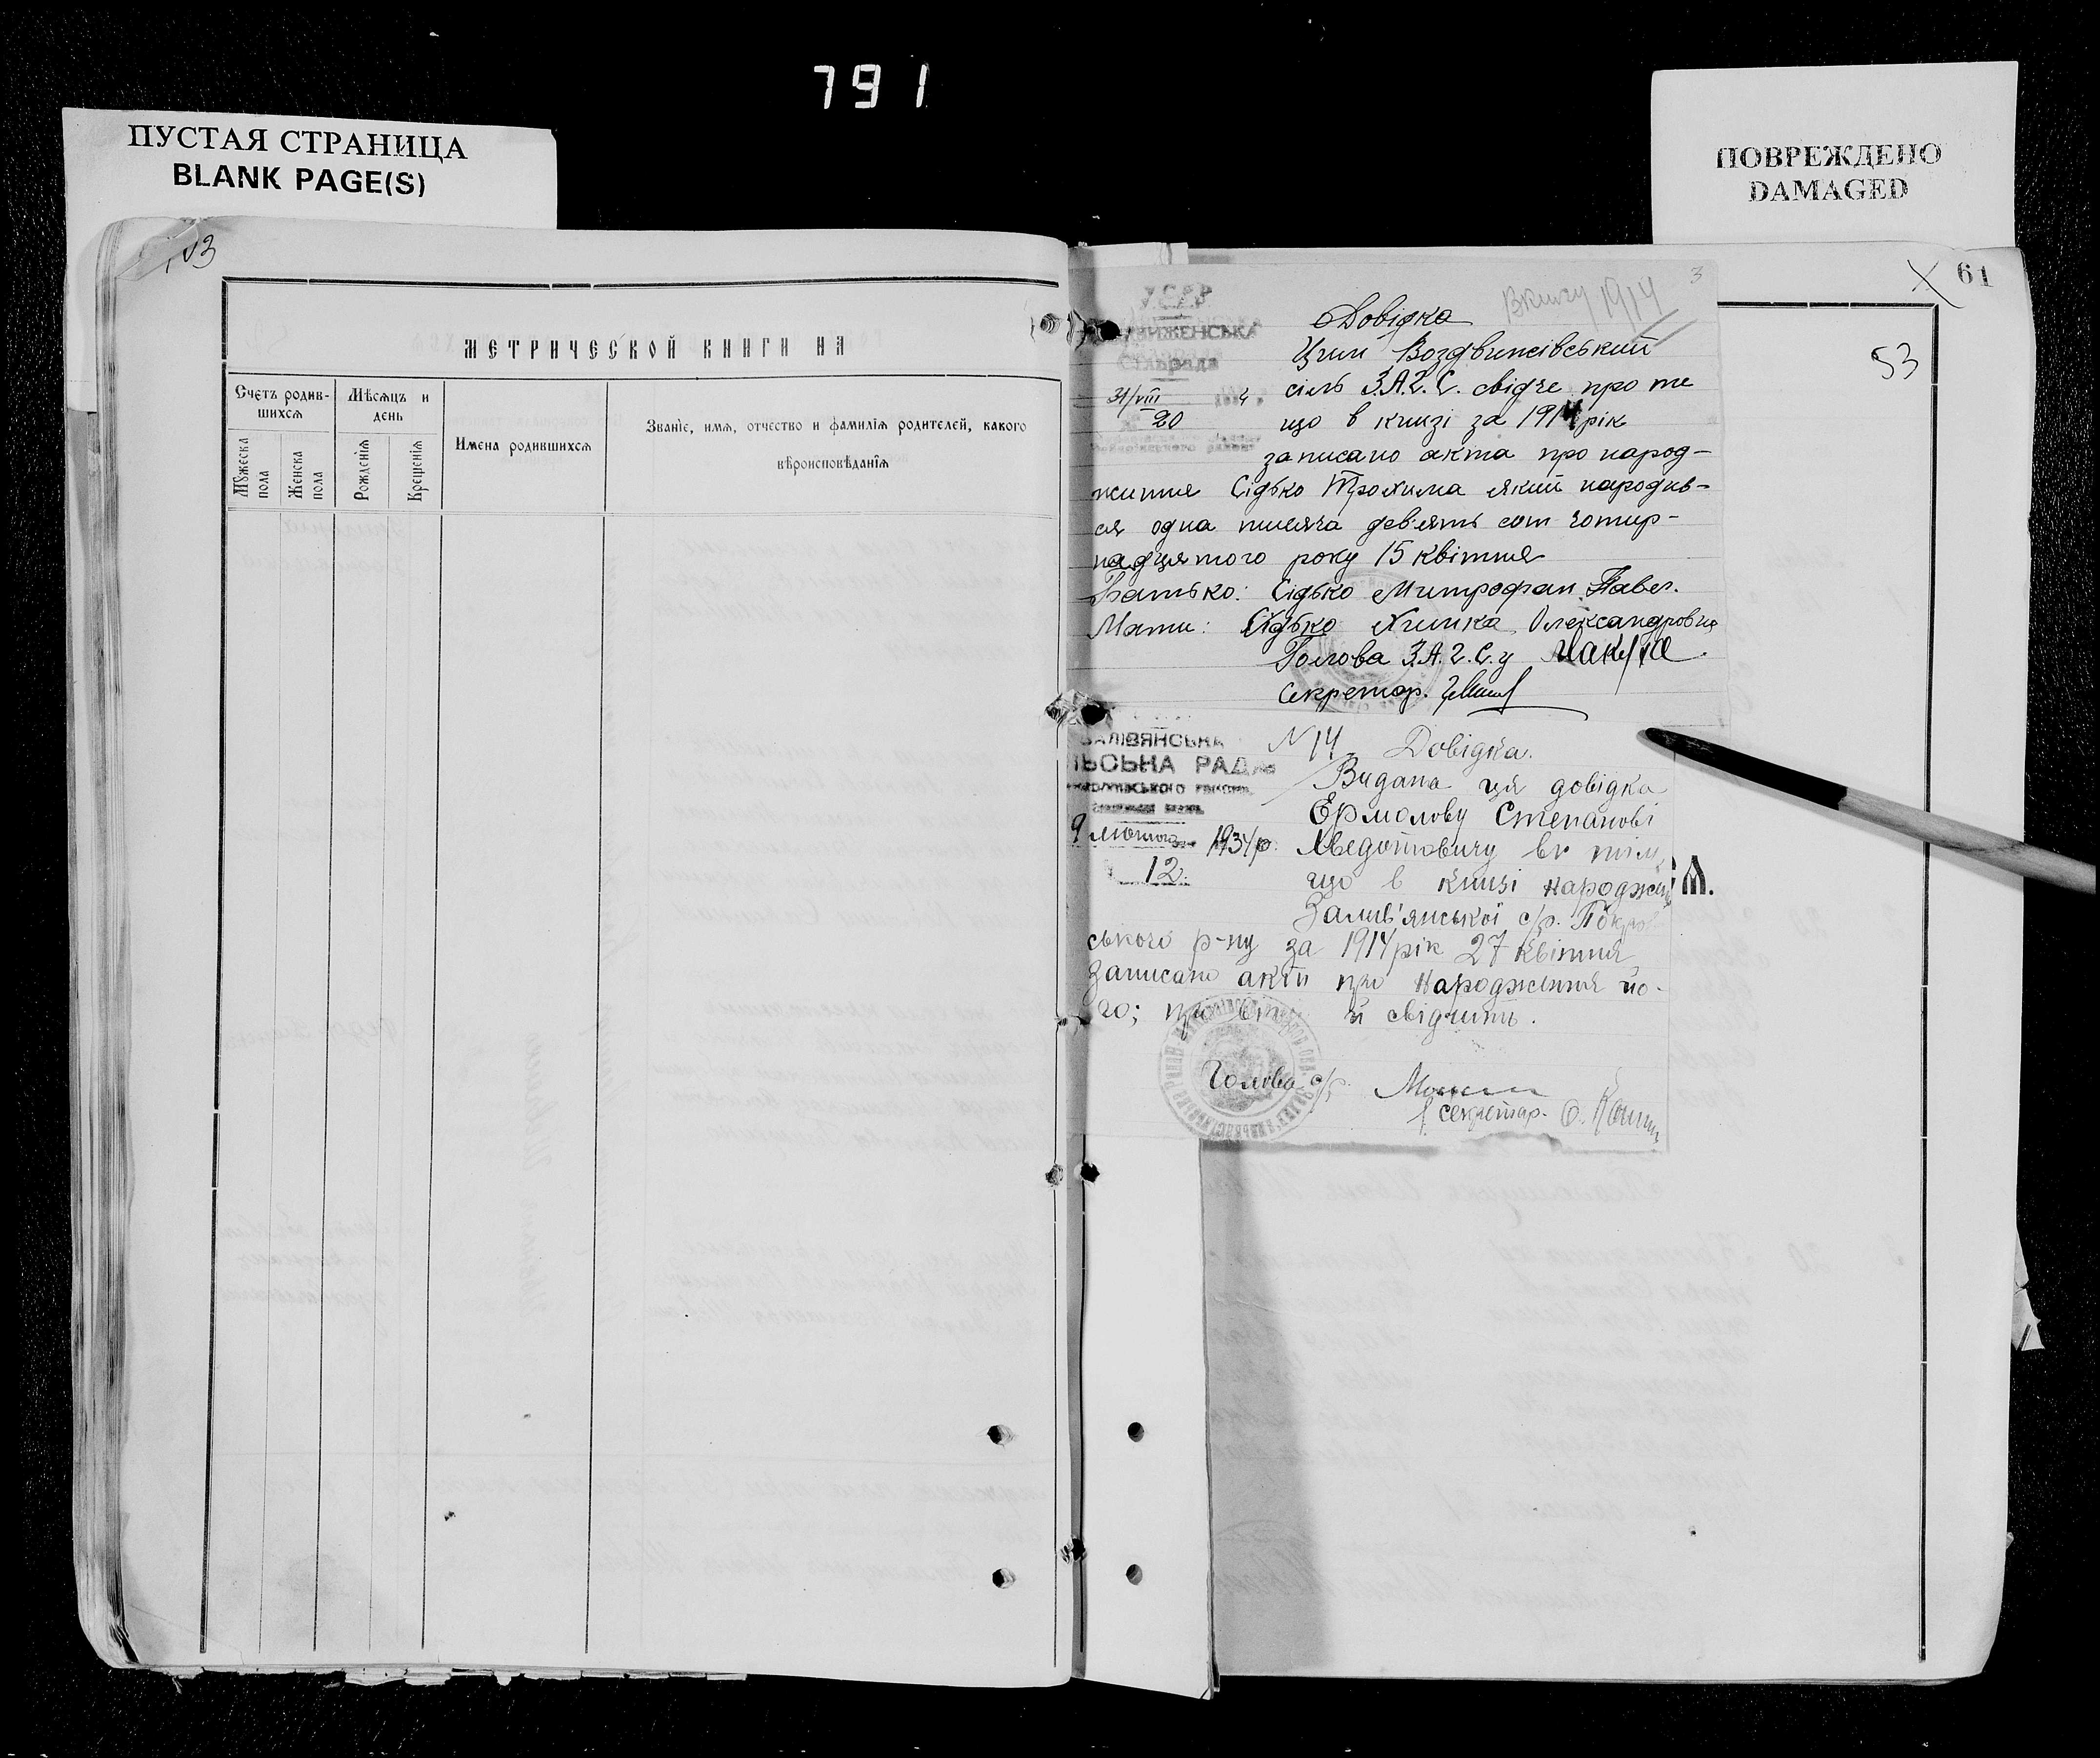 791
ПУСТАЯ СТРАНИЦА
BLANK PAGE(S)
ПОВРЕЖДЕНО
DAMAGED
МЕТРИЧЕСКОЙ КНИГИ НА
Счетъ родив-
шихся
Мѣсяцъ и
день
Мужеска
пола
Женска
пола
Рожденія
Крещенія
Имена родившихся
Званіе, имя, отчество и фамилія родителей, какого
вѣроисповѣданія
61
53
3
В книгу 1914
УСРР
ВИЖЕНСЬКА
Сільрада
31/VIII 4
20
Довідка
Цим Воздвижівський
сіль З.А.Г.С. свідче про те
що в книзі за 1914 рік
записано акта про народ-
життя Сідько Трохима який народив-
ся одна тисяча девʼять сот чотир-
надцятого року 15 квітня
Батько: Сідько Митрофан Павл.
Мати: Сідько Химка Олександровна
Голова З.А.Г.С.у
Секретар.
ЗАЛІВЯНСЬКА
ЛЬСЬКА РАДА
9 лютого 1934 р.
12.
N 14 Довідка.
Видана ця довідка
Ермолову Степанові
Хведотовичу в тім,
що в книзі народжен
Залив'янської с/р. Покров
ського р-ну за 1914 рік 27 квітня
записано акти про народження йо-
го; що й свідчить.
Голова с/р.
Секретар.